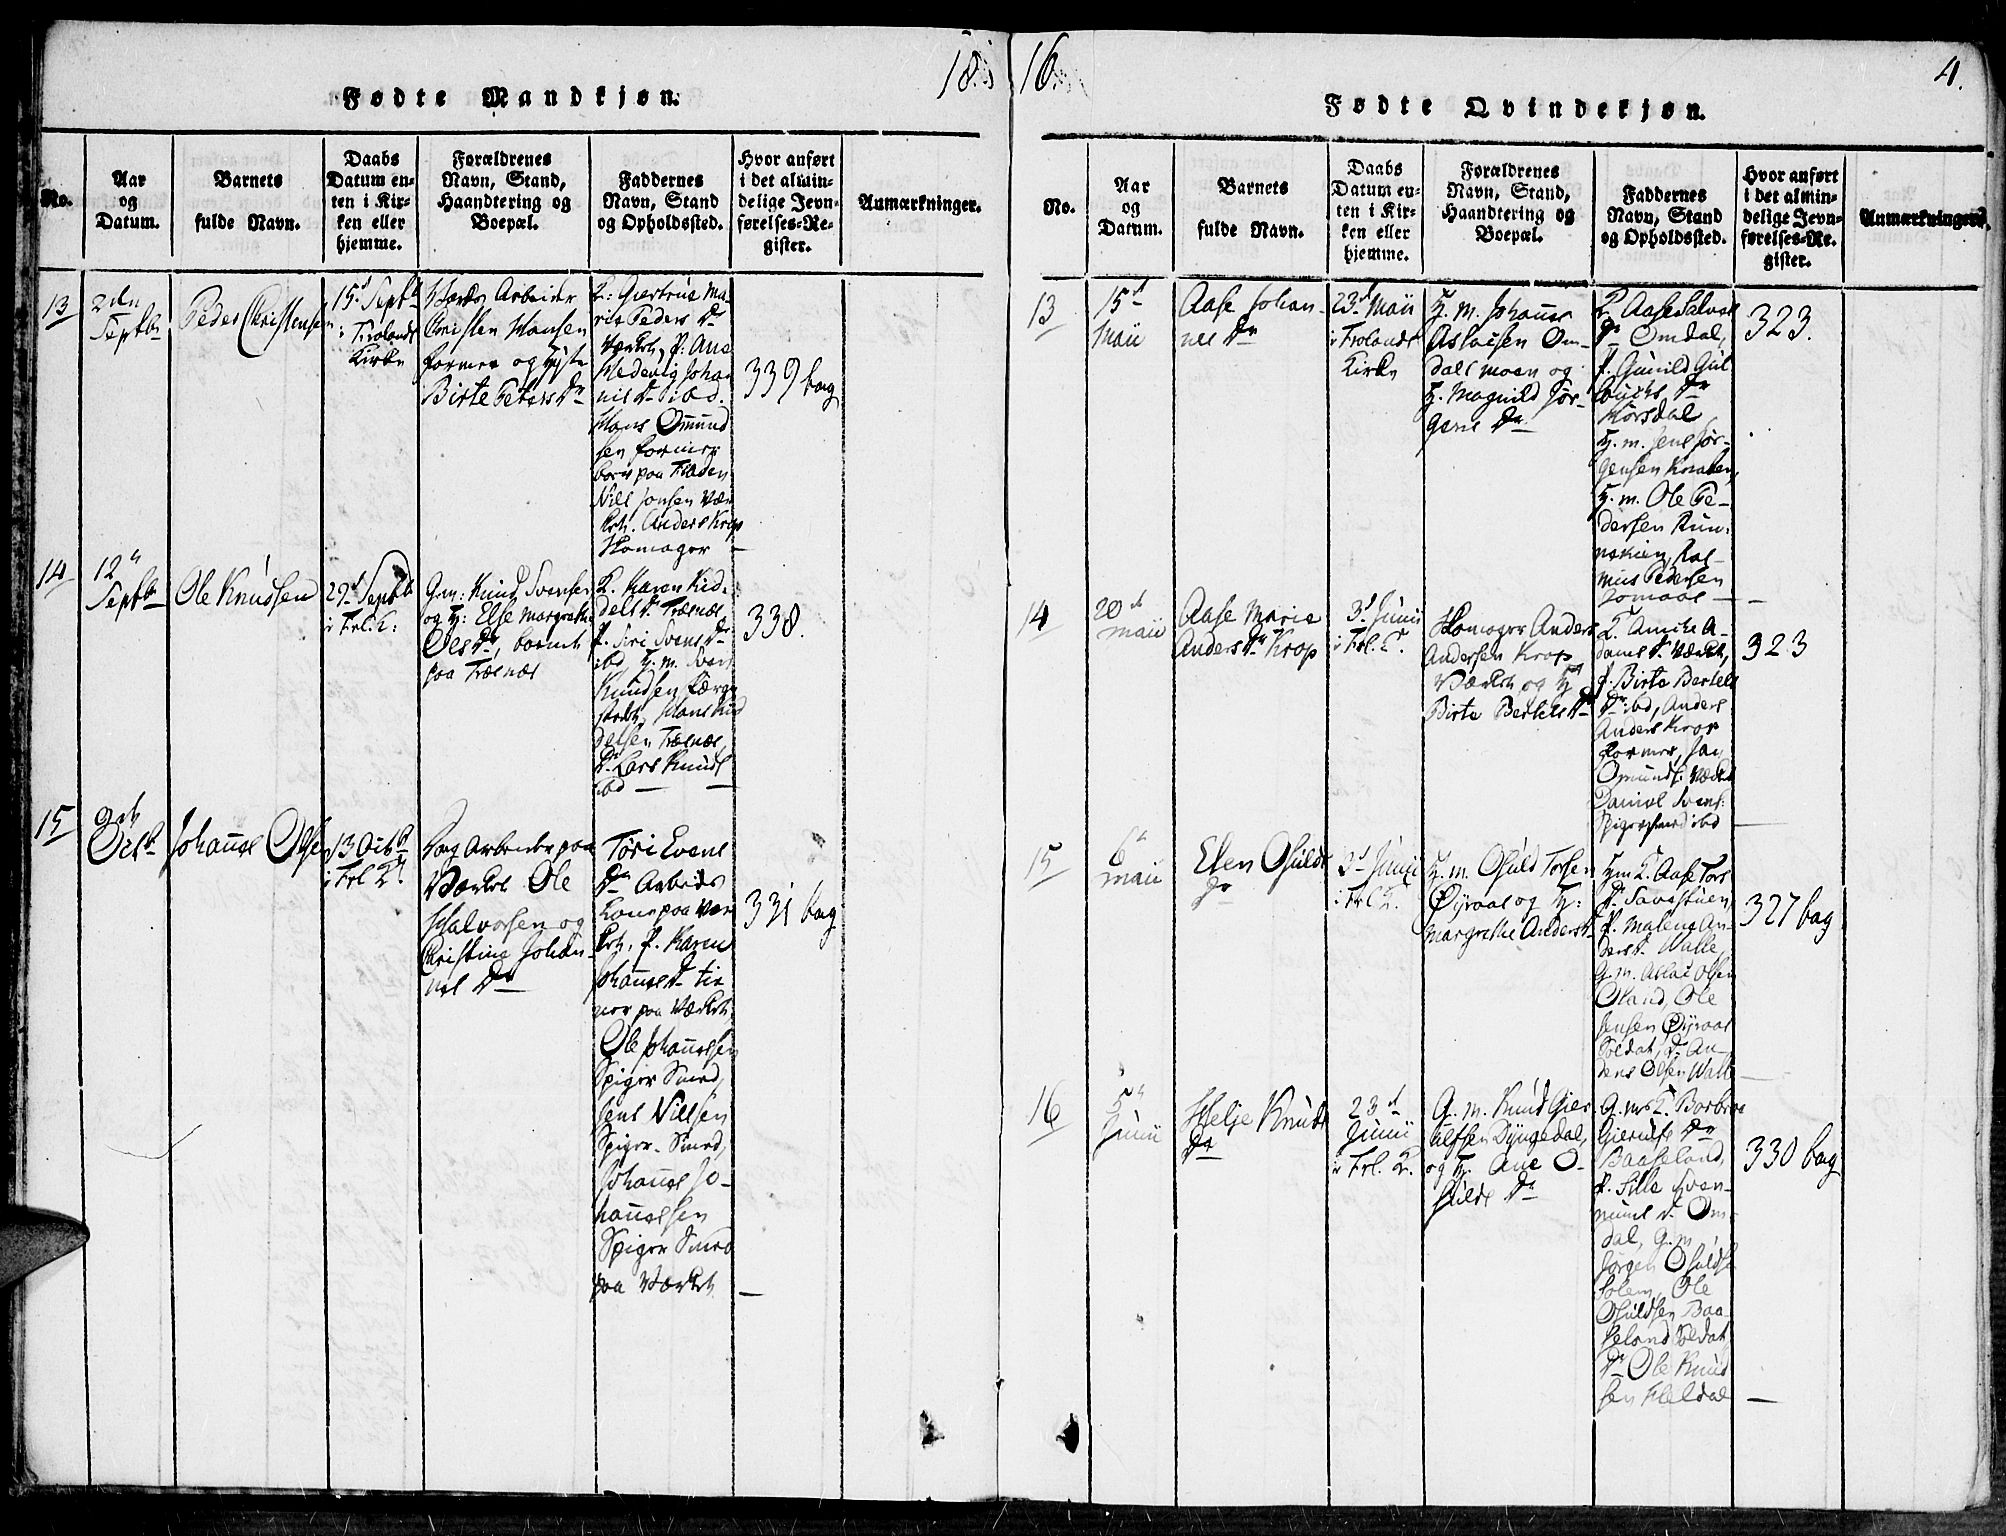 1816.
4.
Fødte Mandkjøn.
No.
Aar
og
Datum.
Barnets
fulde Navn.
Daabs
Datum en-
ten i Kir-
ken eller
hjemme.
Forældrenes
Navn, Stand,
Haandtering og
Boepæl.
Faddernes
Navn, Stand
og Opholdssted.
Hvor anført
i det almin-
delige Jevn-
førelses-Re-
gister.
Anmærkninger.
13
2den
Septbr
Peder Christensen
15d Septbr
i Frolands
Kirke
Arbeider
Christen Hansen
former og Hustr
Birte Peters Dr
K: Giertrue Ma-
ris Peders Dr
Værket, P: Ane
Hedevig Johan
nis Dr ibd.
Hans Omund
sen former
boer paa Fladen
Nils Jonsen Vær
ket. Anders Krop
Homager
339 bag
14
12
Septbr
Ole Knudsen
29d Septbr
i Frl. K:
Gm: Knud Svensen
og H: Else Margrethe
Oles Dr, boende
paa Trænæs
K. Karen Kid-
dels Dr Trænæs
P. Siri Svens Dr
ibd, G. m. Svend
Knudsen
Hans Kid
delsen Trænæs,
Dr. Lars Knuds
ibd
338.
15
2de
Octbr
Johannes Olsen
13 Octbr
i Frl K.
Dag Arbeider paa
Værket Ole
Halvorsen og
Christine Johan-
nes Dr
Tøri Evens
Dr Arbeids
Kone paa Vær
ket, P. Karen
Johannes Dr tie
ner paa Værket.
Ole Johannesen
Spiger Smed,
Jens Nilsen
Spiger Smed,
Johannes Jo-
hannesen
Spiger Smed
paa Værket.
331 bag
Fødte Qvindekjøn.
No.
Aar
og
Datum.
Barnets
fulde Navn.
Daabs
Datum en-
ten i Kir-
ken eller
hjemme.
Forældrenes
Navn, Stand,
Haandtering og
Boepæl.
Faddernes
Navn, Stand
og Opholdssted.
Hvor anført
i det almin-
delige Jevn-
førelses-Re-
gister.
Anmærkninger.
13
15d
Maii
Aase Johan
nes Dr
23d Maii
i Frolands
Kirke
H. m. Johannes
Aslaksen Om-
dals moen og
H. Magnild Jør-
gens Dr
K. Aase Salves
Dr Omdal,
P. Gunild Gul
Dr
Hørsdal
H. m. Jens Jør-
gensen Knaben,
H. m. Ole Pe-
dersen
Ras-
mus Pedersen
323.
14
20de
Maii
Aase Marie
Anders Dr Krop
3d Junii
i Frl. K.
Homager Anders
Andersen Krop
Værket og H
Birte Bertels Dr
K. Anike A-
dams Dr Værket,
P. Birte Bertels
Dr ibd, Anders
Anders Krop
former,
Omunds: Værket
Daniel Svens:
Spigersmed ibd
323
15
6
Maii
Elen Osulds
Dr
3d Junii
i Frl. K.
H. m. Osuld Torsen
Øyvaas og H:
Margrethe Anders Dr
Hm K. Aase Tors
Dr Savestuen
P. Malene An-
ders Dr Walle,
G. m. Aslac Olsen
Osland, Ole
Jensen Øyvaas
Soldat, Dr. An-
ders Olsen Walle
327 bag
16
5
Junii
Helje Knuds
Dr
23d
Junii
i Frl. K.
G. m. Knud Gier-
ulfsen Dyngedal,
og H. Ane O-
sulds Dr
G. ms K. Barbroe
Gierulfs Dr
Baaseland,
P. Sille Even-
Dr Om-
dal, G. m
Jørgen Osulds
Solem, Ole
Osuldsen Baa-
seland Soldat
Dr Ole Knud
sen Heldal
330 bag